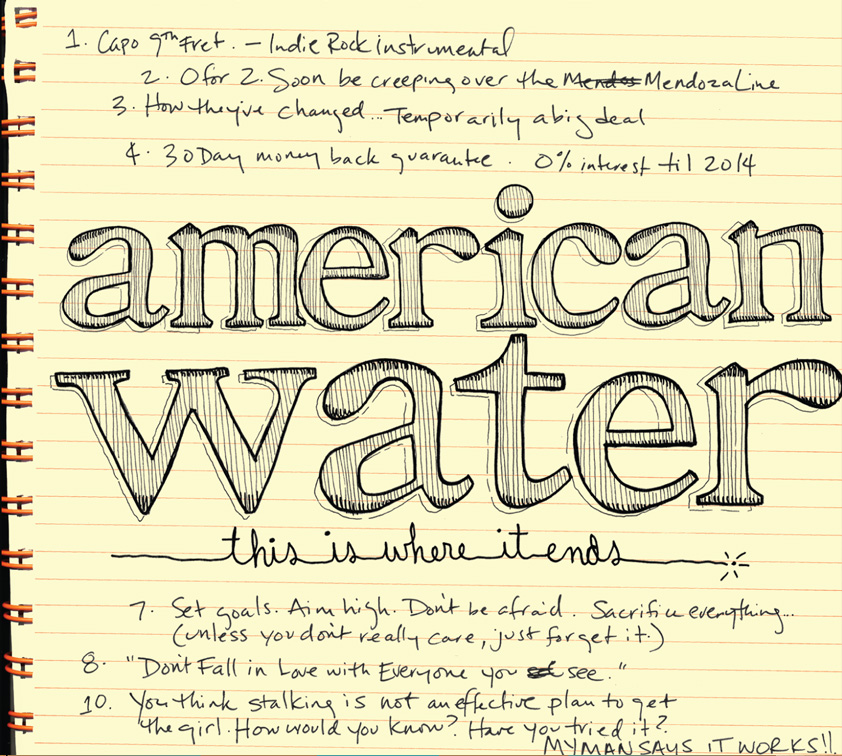 1. Capo 9th Fret. – Indie Rock instrumental
2. 0 for 2. Soon be creeping over the Mendos Mendoza Line
3. How they've changed... Temporarily a big deal
4. 30 Day money back guarantee. 0% interest til 2014
american
water
this is where it ends
7. Set goals. Aim high. Don't be afraid. Sacrifice everything...
(unless you don't really care, just forget it.)
8. "Don't Fall in Love with Everyone you see."
10. You think stalking is not an effective plan to get
the girl. How would you know? Have you tried it?
MY MAN SAYS IT WORKS!!